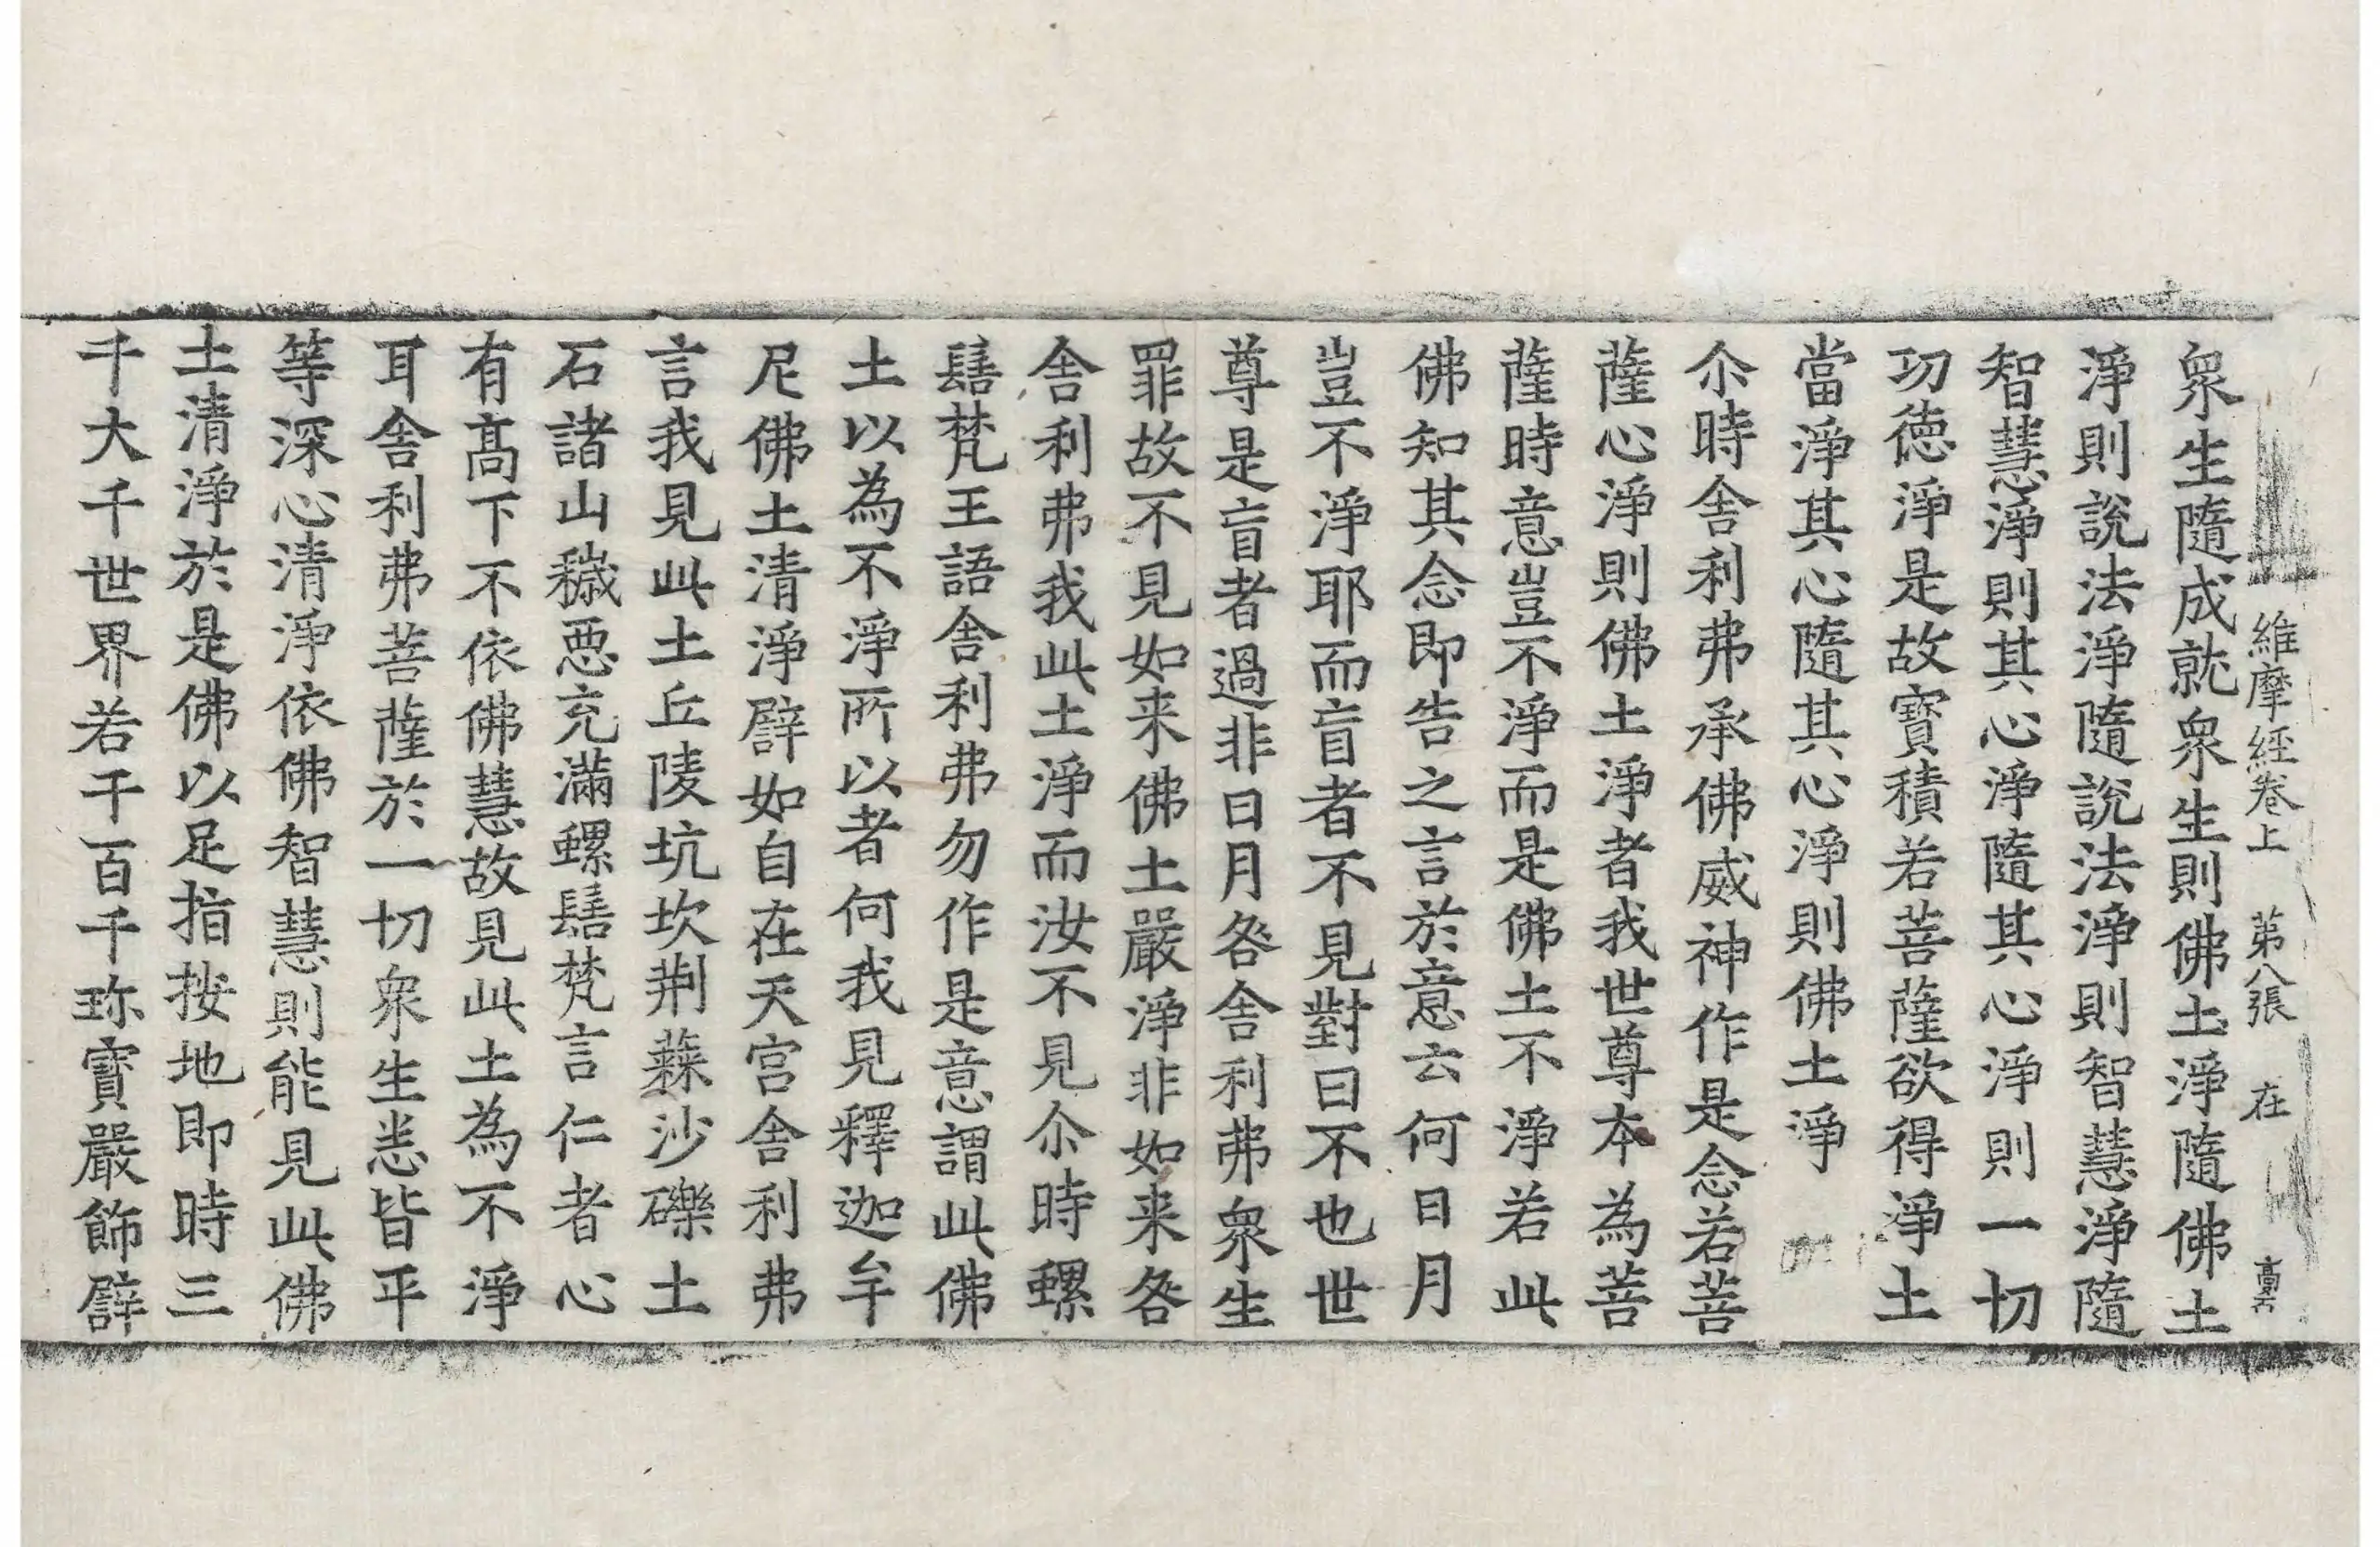 維摩經卷上 第八張 在
衆生隨成就衆生則佛土淨隨佛土
淨則說法淨隨說法淨則智慧淨隨
智慧淨則其心淨隨其心淨則一切
功德淨是故寶積若菩薩欲得淨土
當淨其心隨其心淨則佛土淨
尒時舍利弗承佛威神作是念若菩
薩心淨則佛土淨者我世尊本為菩
薩時意豈不淨而是佛土不淨若此
佛知其念即告之言於意云何日月
豈不淨耶而盲者不見對曰不也世
尊是盲者過非日月咎舍利弗衆生
罪故不見如来佛土嚴淨非如来咎
舍利弗我此土淨而汝不見尒時螺
髻梵王語舍利弗勿作是意謂此佛
土以為不淨所以者何我見釋迦牟
尼佛土清淨譬如自在天宮舍利弗
言我見此土丘陵坑坎荆蕀沙礫土
石諸山穢惡充滿螺髻梵言仁者心
有髙下不依佛慧故見此土為不淨
耳舍利弗菩薩於一切衆生悉皆平
等深心清淨依佛智慧則能見此佛
土清淨於是佛以足指按地即時三
千大千世界若干百千珎寶嚴飾譬